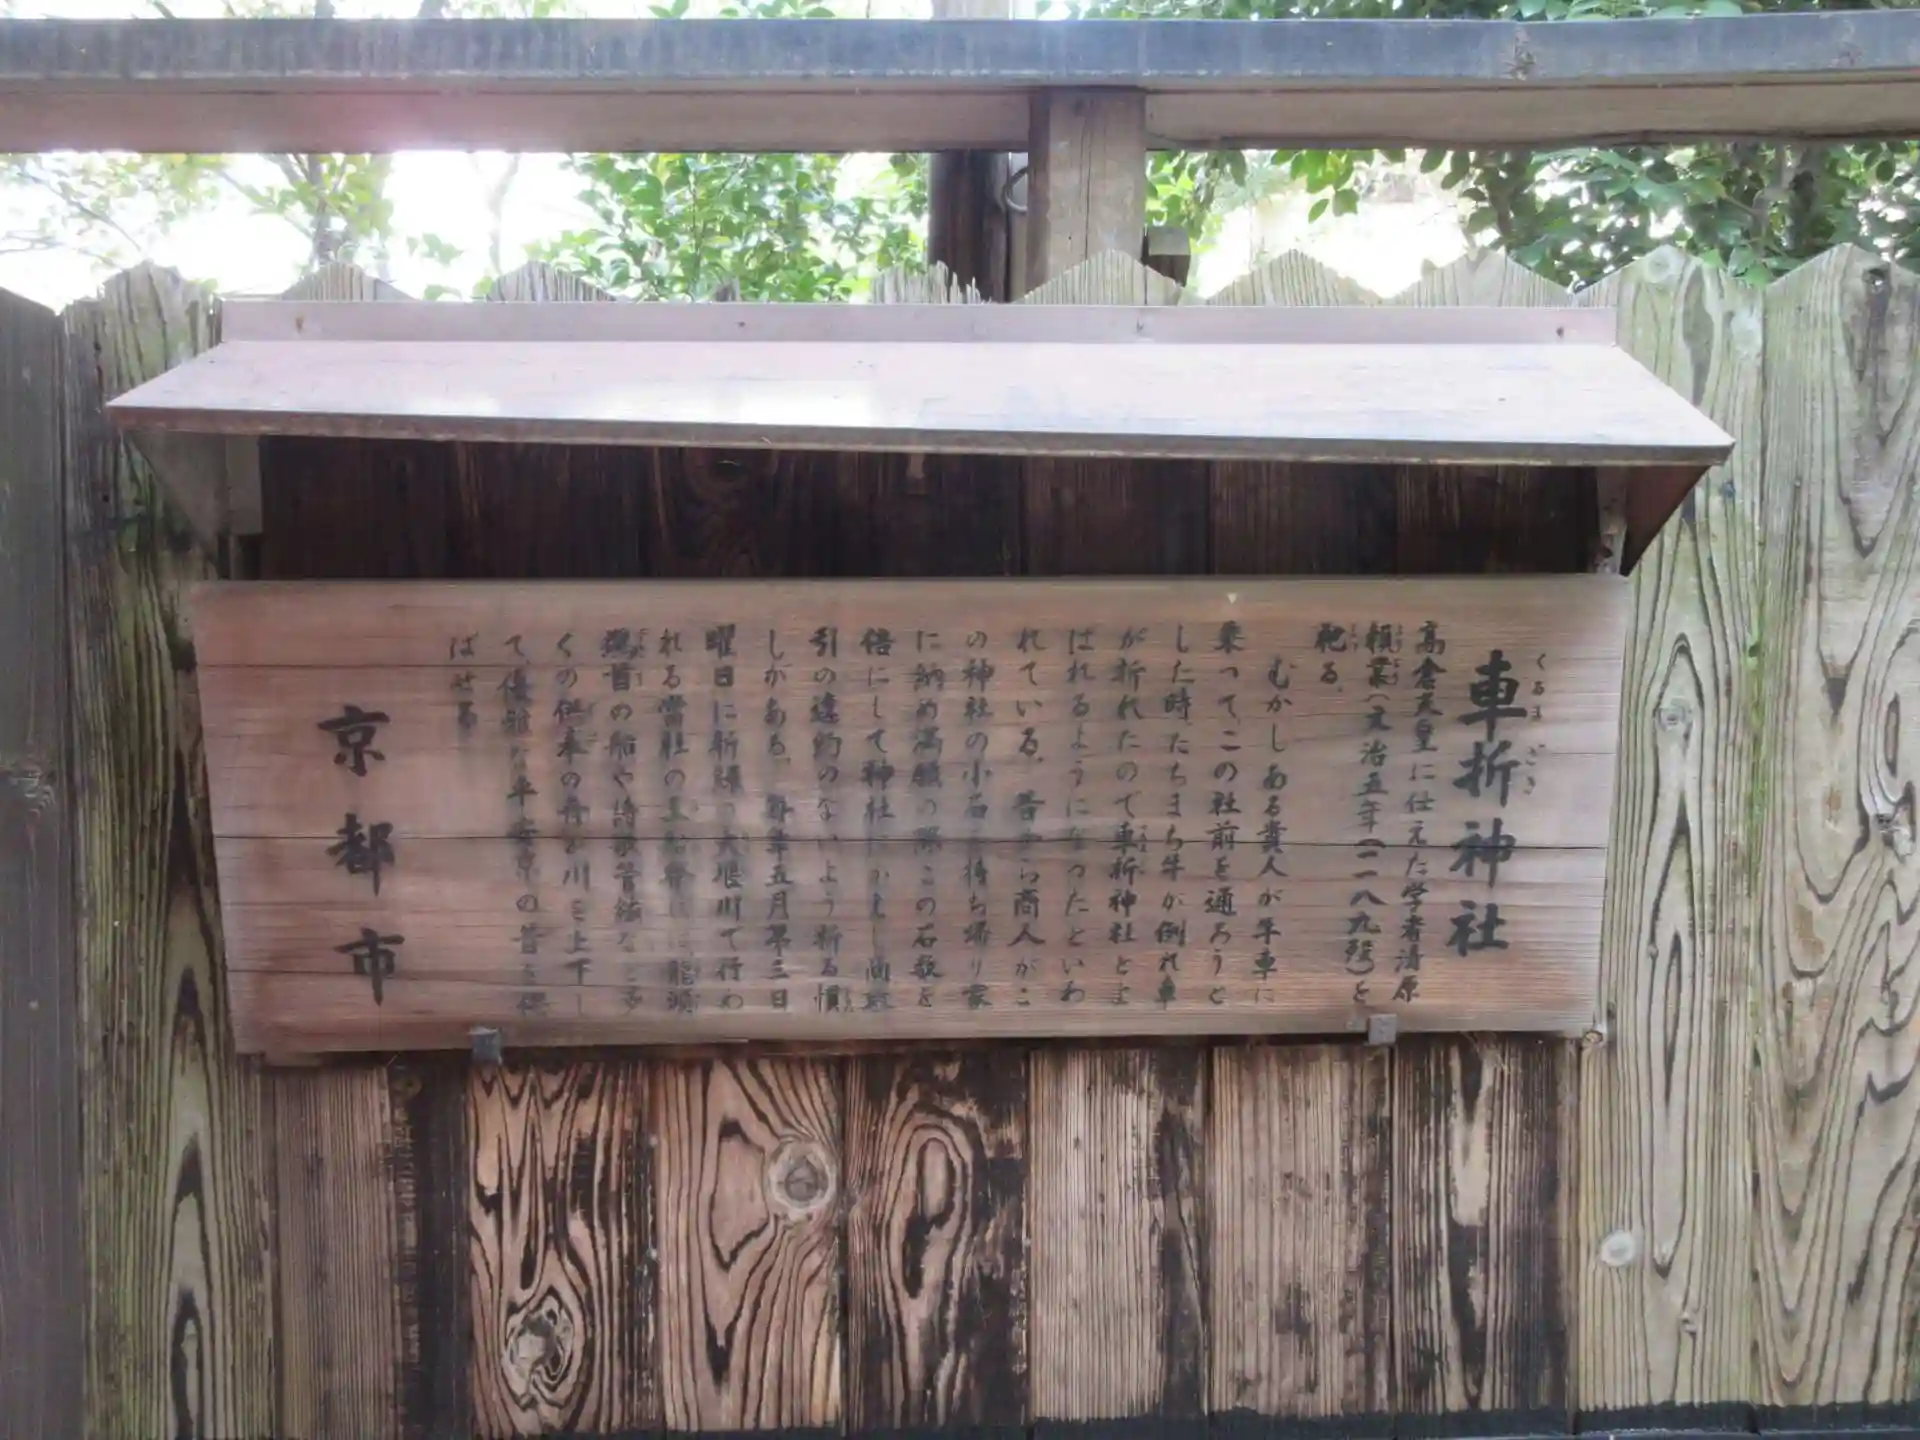 車折神社
くるま ざき
高倉天皇に仕えた学者清原
頼業（文治五年（一一八九）歿）を
祀る。
むかしある貴人が牛車に
乗って、この社前を通ろうと
した時、たちまち牛が倒れ車
が折れたので車折神社とよ
ばれるようになったといわ
れている。昔から商人がこ
の神社の小石を持ち帰り家
に納め満願の際この石数を
倍にして神社にかえし商取
引の違約のないよう祈る慣
しがある。毎年五月第三日
曜日に新緑の大堰川で行わ
れる当社の三船祭には龍頭
鷁首の船や詩歌管絃など多
くの供奉の舟が川を上下し
て、優雅な平安京の昔を偲
ばせる
京都市